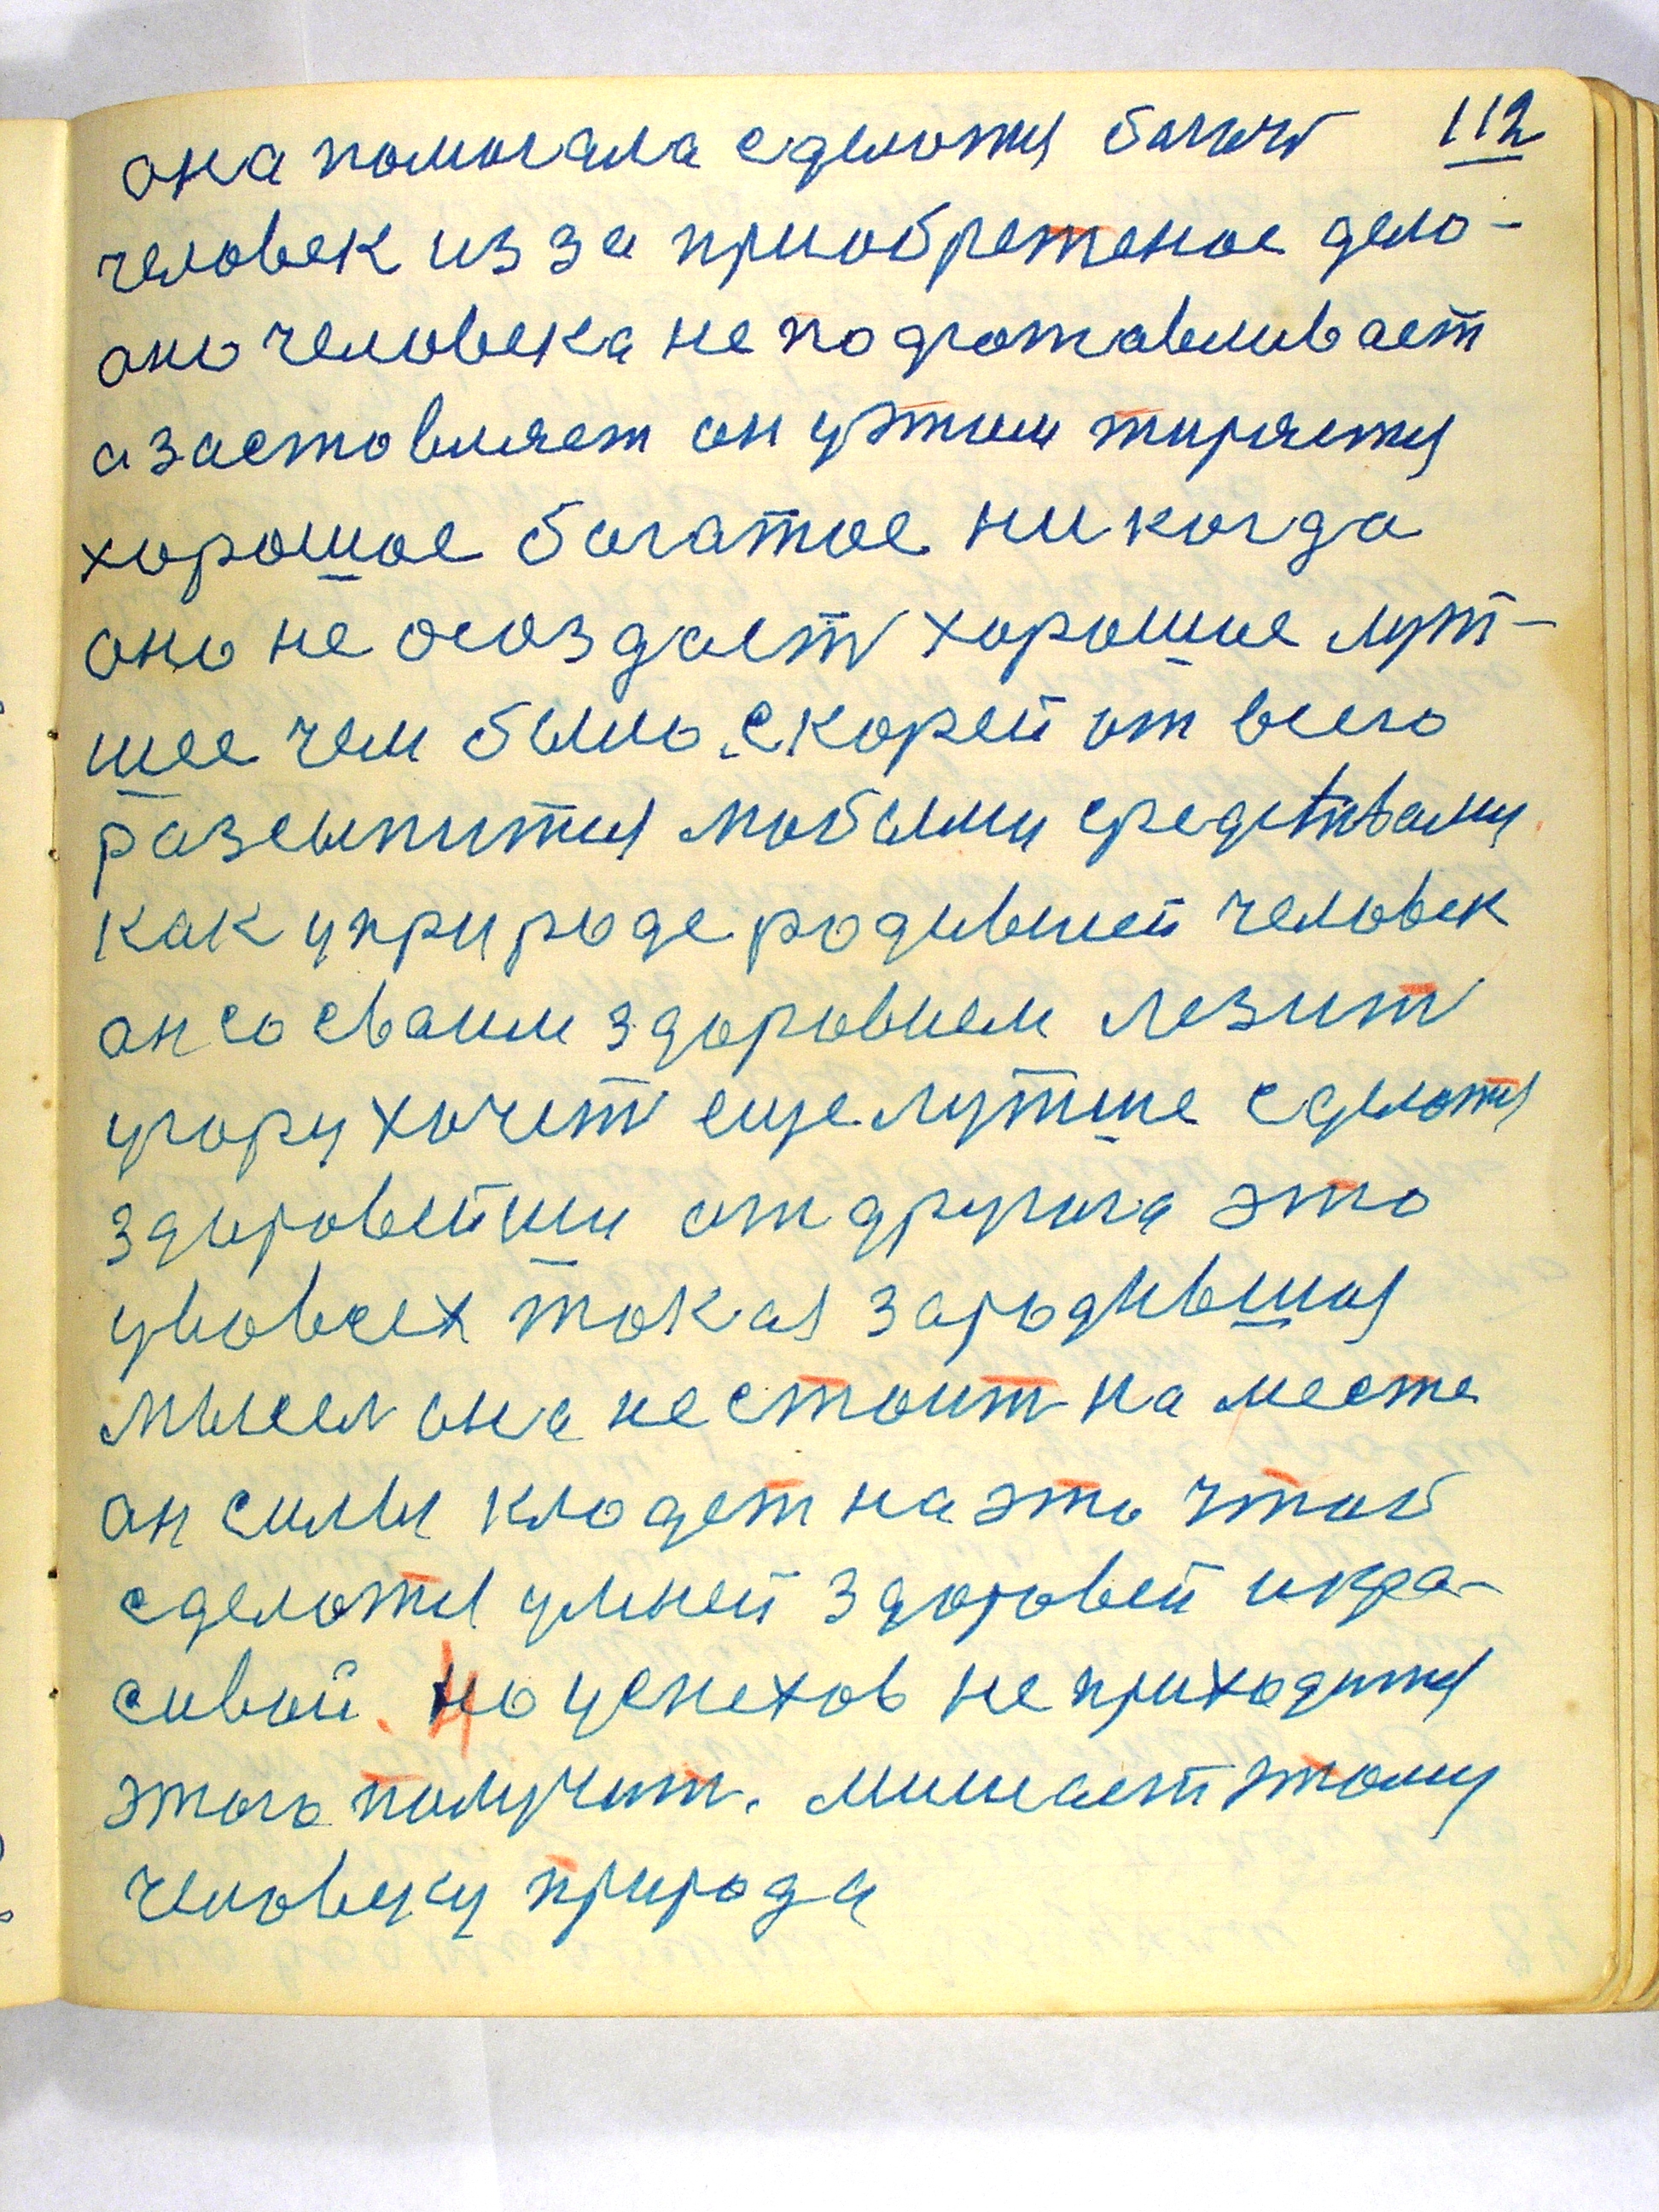 она помогала сделотся богачь 112
человек из за приобретеное дело-
оно человека не подготавливает
а заставляет он у этим тирятся
хорошое богатое ни когда
оно не осоздаеть хорошое лут-
шее чем было. Скорей от всего
разсыпится любыми средствами
как у природе родившей человек
он со своим здоровием лезить
угору хочеть еще лутше сделотся
здоровейши от другога это
у во всех токая зародившая
мысел она не стоит на месте
он силы клодет на это чтоб
сделотся умней здоровей и кра-
сивой. Но успехов не приходится
этого получит. Мишает этому
человеку природа